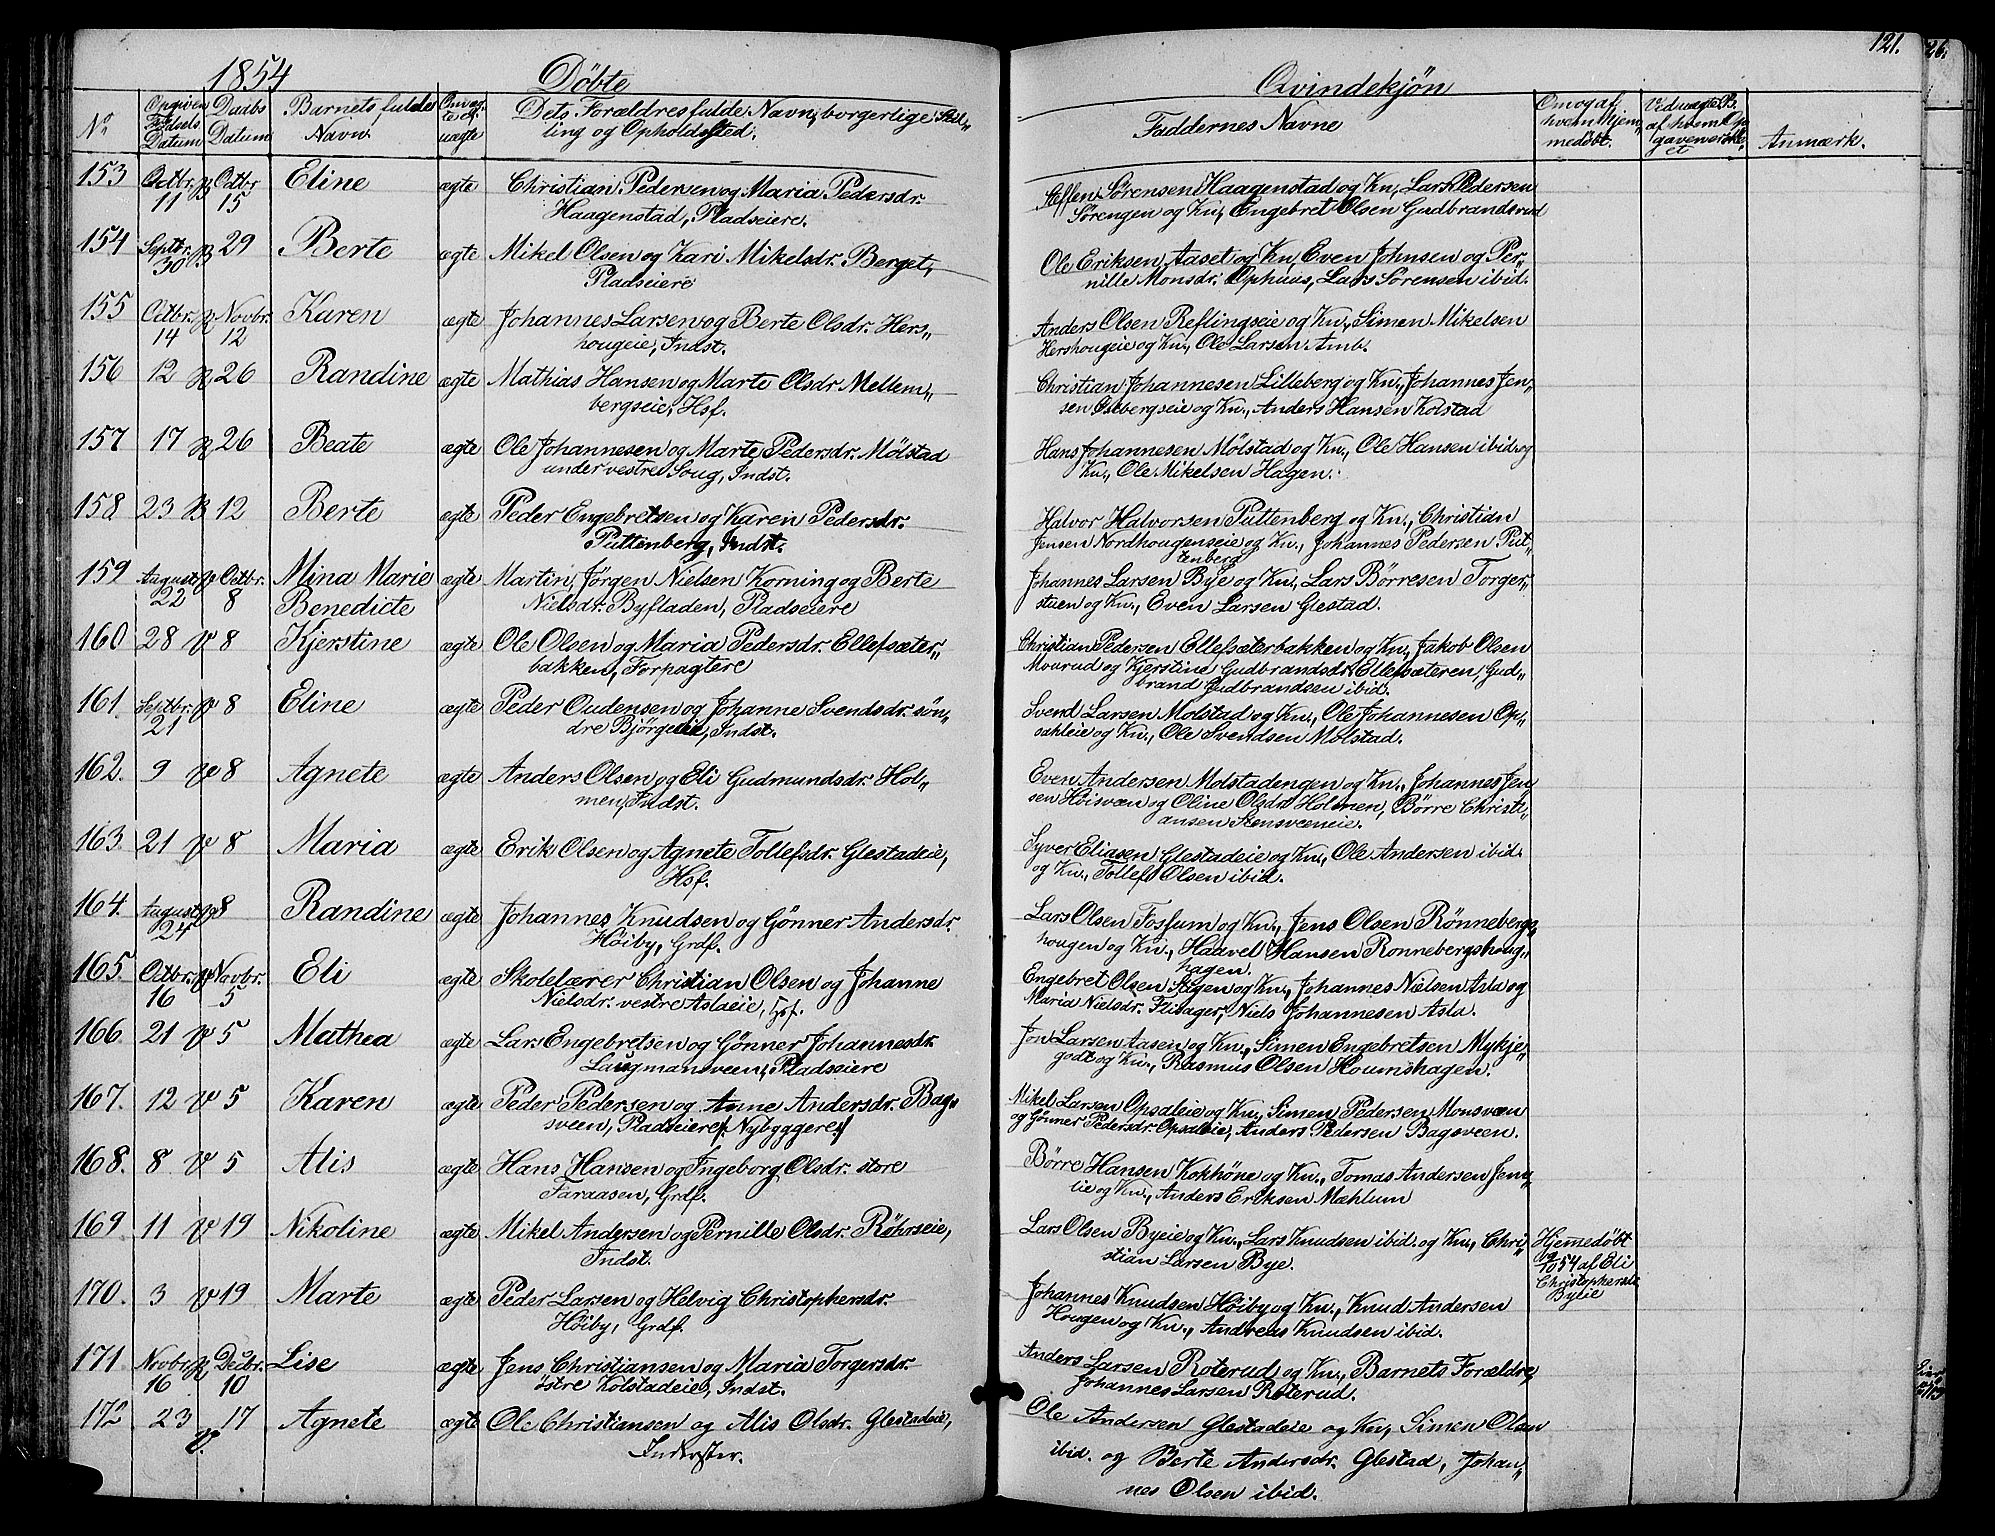 1854 Döbte Qvindekjøn 121.
No. Opgiven Fødsels Datum Daabs Datum Barnets fulde Navn Om ægte el. uægte Dets Forældres fulde Navn, borgerlige Stilling og Opholdssted. Faddernes Navne Om og af hvem hjemmedøbt. Anmærk.
153 Octbr. 11 Octbr 15 Eline ægte Christian Pedersen og Maria Pedersdr. Steffen Sörensen Haagenstad og Kn., Lars Pedersen
Haagenstad, Pladseiere. Sörengen og Kn., Engebret Olsen Gudbrandsrud
154 Septbr. 30 29 Berte ægte Mikel Olsen og Kari Mikelsdr. Berget, Ole Eriksen Aaset og Kn, Even Johnsen og Per„
Pladseiere nille Monsdr. Ophuus, Lars Sörensen ibid.
155 Octbr. 14 Novbr. 12 Karen ægte Johannes Larsen og Berte Olsdr. Hers„ Anders Olsen Reflingseie og Kn., Simen Mikelsen
hougeie, Indst. Hershougeie og Kn., Ole Larsen Amb.
156 12 26 Randine ægte Mathias Hansen og Marte Olsdr. Mellem„ Christian Johannesen Lilleberg og Kn., Johannes Jen„
bergseie, Hsf. sen Ostbergseie og Kn., Anders Hansen Kolstad
157 17 26 Beate ægte Ole Johannesen og Marte Pedersdr. Mölstad Hans Johannesen Mölstad og Kn., Ole Hansen ibid. og
under vestre Soug, Indst. Kn., Ole Mikelsen Hagen.
158 23 12 Berte ægte Peder Engebretsen og Karen Pedersdr. Halvor Halvorsen Puttenberg og Kn., Christian
Puttenberg, Indst. Jensen Nordhougenseie og Kn., Johannes Pedersen Put„
tenberg
159 August 22 Octbr. 8 Mina Marie ægte Martin Jörgen Nielsen Korning og Berte Johannes Larsen Bye og Kn., Lars Börresen Torger„
Benedicte Nielsdr. Byfladen, Pladseiere stuen og Kn., Even Larsen Glestad.
160 28 8 Kjerstine ægte Ole Olsen og Maria Pedersdr. Ellefsæter„ Christian Pedersen Ellefsæterbakken og Kn., Jakob Olsen
bakken, Forpagtere Mourud og Kjerstine Gudbrandsdr. Ellefsæteren, Gud„
brand Gudbrandsen ibid.
161. Septbr. 21 8 Eline ægte Peder Oudensen og Johanne Svendsdr. søn„ Svend Larsen Molstad og Kn., Ole Johannesen Op„
dre Bjørgeeie, Indst. sahleie og Kn., Ole Svendsen Molstad.
162. 9 8 Agnete ægte Anders Olsen og Eli Gudmundsdr. Hol„ Even Andersen Molstadengen og Kn., Johannes Jen„
men, Indst. sen Hoisveen og Oline Olsdr. Holmen, Börre Christi„
ansen Stensveeneie.
163. 21 8 Maria ægte Erik Olsen og Agnete Tollefsdr. Glestadeie, Syver Eliasen Glestadeie og Kn., Ole Andersen ibid.
Hsf. og Kn., Tollef Olsen ibid.
164. August 24 8 Randine ægte Johannes Knudsen og Gönner Andersdr. Lars Olsen Fosfum og Kn., Jens Olsen Rönnebergs„
Höiby, Grdf. hougen og Kn., Haavel Hansen Ronnebergshoug„
hagen.
165. Octbr. 16 Novbr. 5 Eli ægte Skolelærer Christian Olsen og Johanne Engebret Olsen Stegen og Kn., Johannes Nielsen Asla og
Nielsdr. vestre Aslaeie, Hsf. Maria Nielsdr. Flisager, Niels Johannesen Asla.
166. 21 5 Mathea ægte Lars Engebretsen og Gönner Johannesdr. Jon Larsen Aasen og Kn., Simen Engebretsen Mykje„
Laugmansveen, Pladseiere godt og Kn., Rasmus Olsen Houmshagen.
167. 12 5 Karen ægte Peder Pedersen og Anne Andersdr. Bags Mikel Larsen Opsaleie og Kn., Simen Pedersen Monsveen
sveen, Pladseiere (Nybyggere) og Gönner Pedersdr. Opsaleie, Anders Pedersen Bagsveen.
168. 8 5 Alis ægte Hans Hansen og Ingeborg Olsdr. store Börre Hansen Kokhöne og Kn., Tomas Andersen Jem„
Faraasen, Grdf. lie og Kn., Anders Eriksen Mæhlum
169. 11 19 Nikoline ægte Mikel Andersen og Pernille Olsdr. Röhrseie, Lars Olsen Byeie og Kn., Lars Knudsen ibid. og Kn., Chri„ Hjemmedöbt
Indst. stian Larsen Bye. 54 af Eli
Christophersdr.
Bylie
170. 3 19 Marte ægte Peder Larsen og Helvig Christophersdr. Johannes Knudsen Höiby og Kn., Knud Andersen
Höiby, Grdf. Hougen og Kn., Andreas Knudsen ibid.
171 Novbr. 16 Decbr. 10 Lise ægte Jens Christiansen og Maria Torgersdr. Anders Larsen Roterud og Kn., Barnets Forældre,
östre Kolstadeie, Indst. Johannes Larsen Roterud.
172 23 17 Agnete ægte Ole Christiansen og Alis Olsdr. Glestadeie, Ole Andersen Glestadeie og Kn, Simen Olsen
Inderster. ibid. og Berte Andersdr. Glestad, Johan„
nes Olsen ibid.